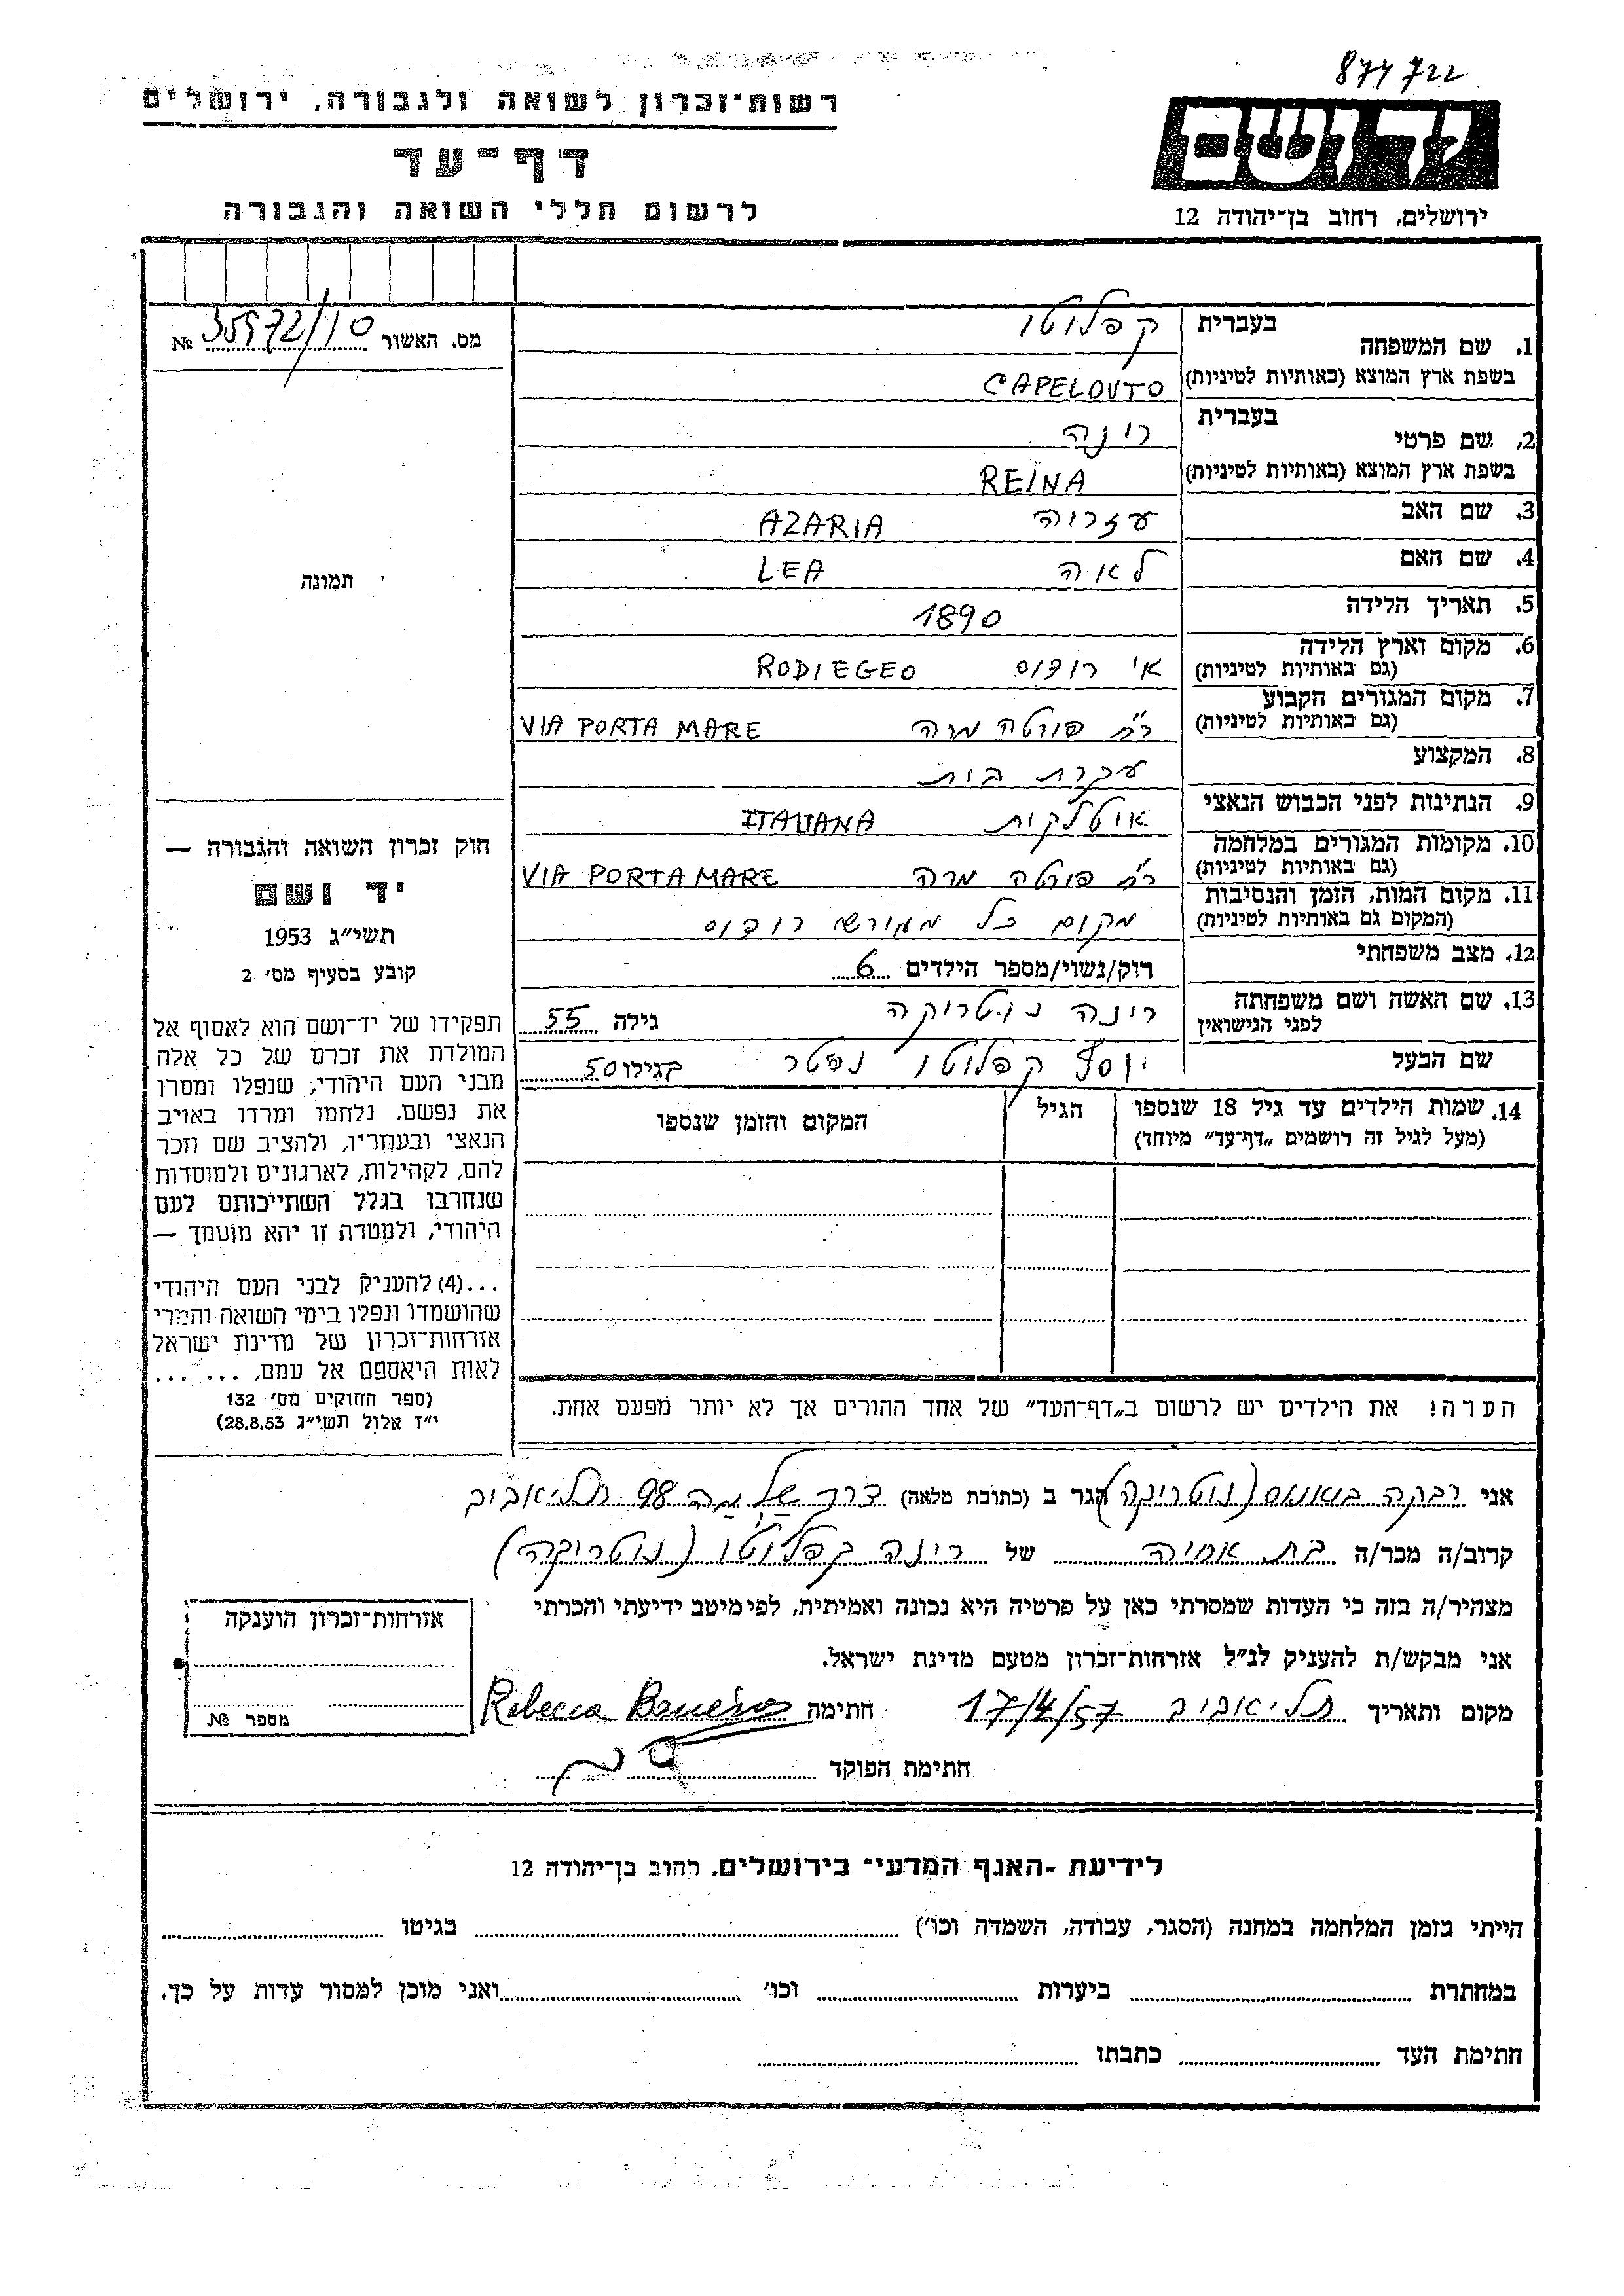 877722
רשות־זכרון לשואה ולגבורה, ירושלים
דף־עד
לרשום חללי השואה והגבורה
ירושלים, רחוב בן־יהודה 12
מס. האשור № 35972/10
תמונה
1. שם המשפחה בעברית קפלוטו
בשפת ארץ המוצא (באותיות לטיניות) CAPELOUTO
2. שם פרטי בעברית רינה
בשפת ארץ המוצא (באותיות לטיניות) REINA
3. שם האב עזריה AZARIA
4. שם האם לאה LEA
5. תאריך הלידה 1890
6. מקום וארץ הלידה (גם באותיות לטיניות) אי רודוס RODI EGEO
7. מקום המגורים הקבוע (גם באותיות לטיניות) רח' פורטה מרה VIA PORTA MARE
8. המקצוע עקרת בית
9. הנתינות לפני הכבוש הנאצי איטלקית ITALIANA
10. מקומות המגורים במלחמה (גם באותיות לטיניות) רח' פורטה מרה VIA PORTA MARE
11. מקום המות, הזמן והנסיבות (המקום גם באותיות לטיניות) מקום כל מגורשי רודוס
12. מצב משפחתי רוק/נשוי/מספר הילדים 6
13. שם האשה ושם משפחתה לפני הנישואין רינה נוטריקה גילה 55
שם הבעל יוסף קפלוטו נפטר בגילו 50
14. שמות הילדים עד גיל 18 שנספו (מעל לגיל זה רושמים „דף־עד" מיוחד) הגיל המקום והזמן שנספו
הערה! את הילדים יש לרשום ב„דף־העד" של אחד ההורים אך לא יותר מפעם אחת.
חוק זכרון השואה והגבורה —
יד ושם
תשי"ג 1953
קובע בסעיף מס' 2
תפקידו של יד־ושם הוא לאסוף אל
המולדת את זכרם של כל אלה
מבני העם היהודי, שנפלו ומסרו
את נפשם, נלחמו ומרדו באויב
הנאצי ובעוזריו, ולהציב שם וזכר
להם, לקהילות, לארגונים ולמוסדות
שנחרבו בגלל השתייכותם לעם
היהודי, ולמטרה זו יהא מוסמך —
...(4) להעניק לבני העם היהודי
שהושמדו ונפלו בימי השואה והמרי
אזרחות־זכרון של מדינת ישראל
לאות היאספם אל עמם, ... ...
(ספר החוקים מס' 132
י"ז אלול תשי"ג 28.8.53)
אני רבקה (נוטריקה) הגר ב (כתובת מלאה) דרך שלמה 98 תל־אביב
קרוב/ה מכר/ה בת אחיה של רינה קפלוטו (נוטריקה)
מצהיר/ה בזה כי העדות שמסרתי כאן על פרטיה היא נכונה ואמיתית, לפי מיטב ידיעתי והכרתי
אני מבקש/ת להעניק לנ"ל אזרחות־זכרון מטעם מדינת ישראל.
מקום ותאריך תל־אביב 17/4/57 חתימה Rebecca
חתימת הפוקד
אזרחות־זכרון הוענקה
מספר №
לידיעת -האגף המדעי־ בירושלים, רחוב בן־יהודה 12
הייתי בזמן המלחמה במחנה (הסגר, עבודה, השמדה וכו') בגיטו
במחתרת ביערות וכו' ואני מוכן למסור עדות על כך.
חתימת העד כתבתו